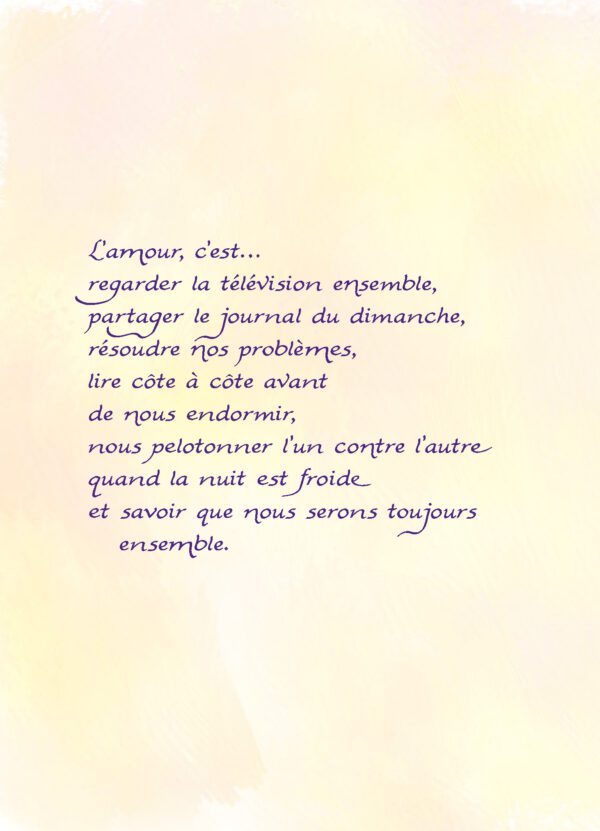 L'amour, c'est...
regarder la télévision ensemble,
partager le journal du dimanche,
résoudre nos problèmes,
lire côte à côte avant
de nous endormir,
nous pelotonner l'un contre l'autre
quand la nuit est froide
et savoir que nous serons toujours
ensemble.